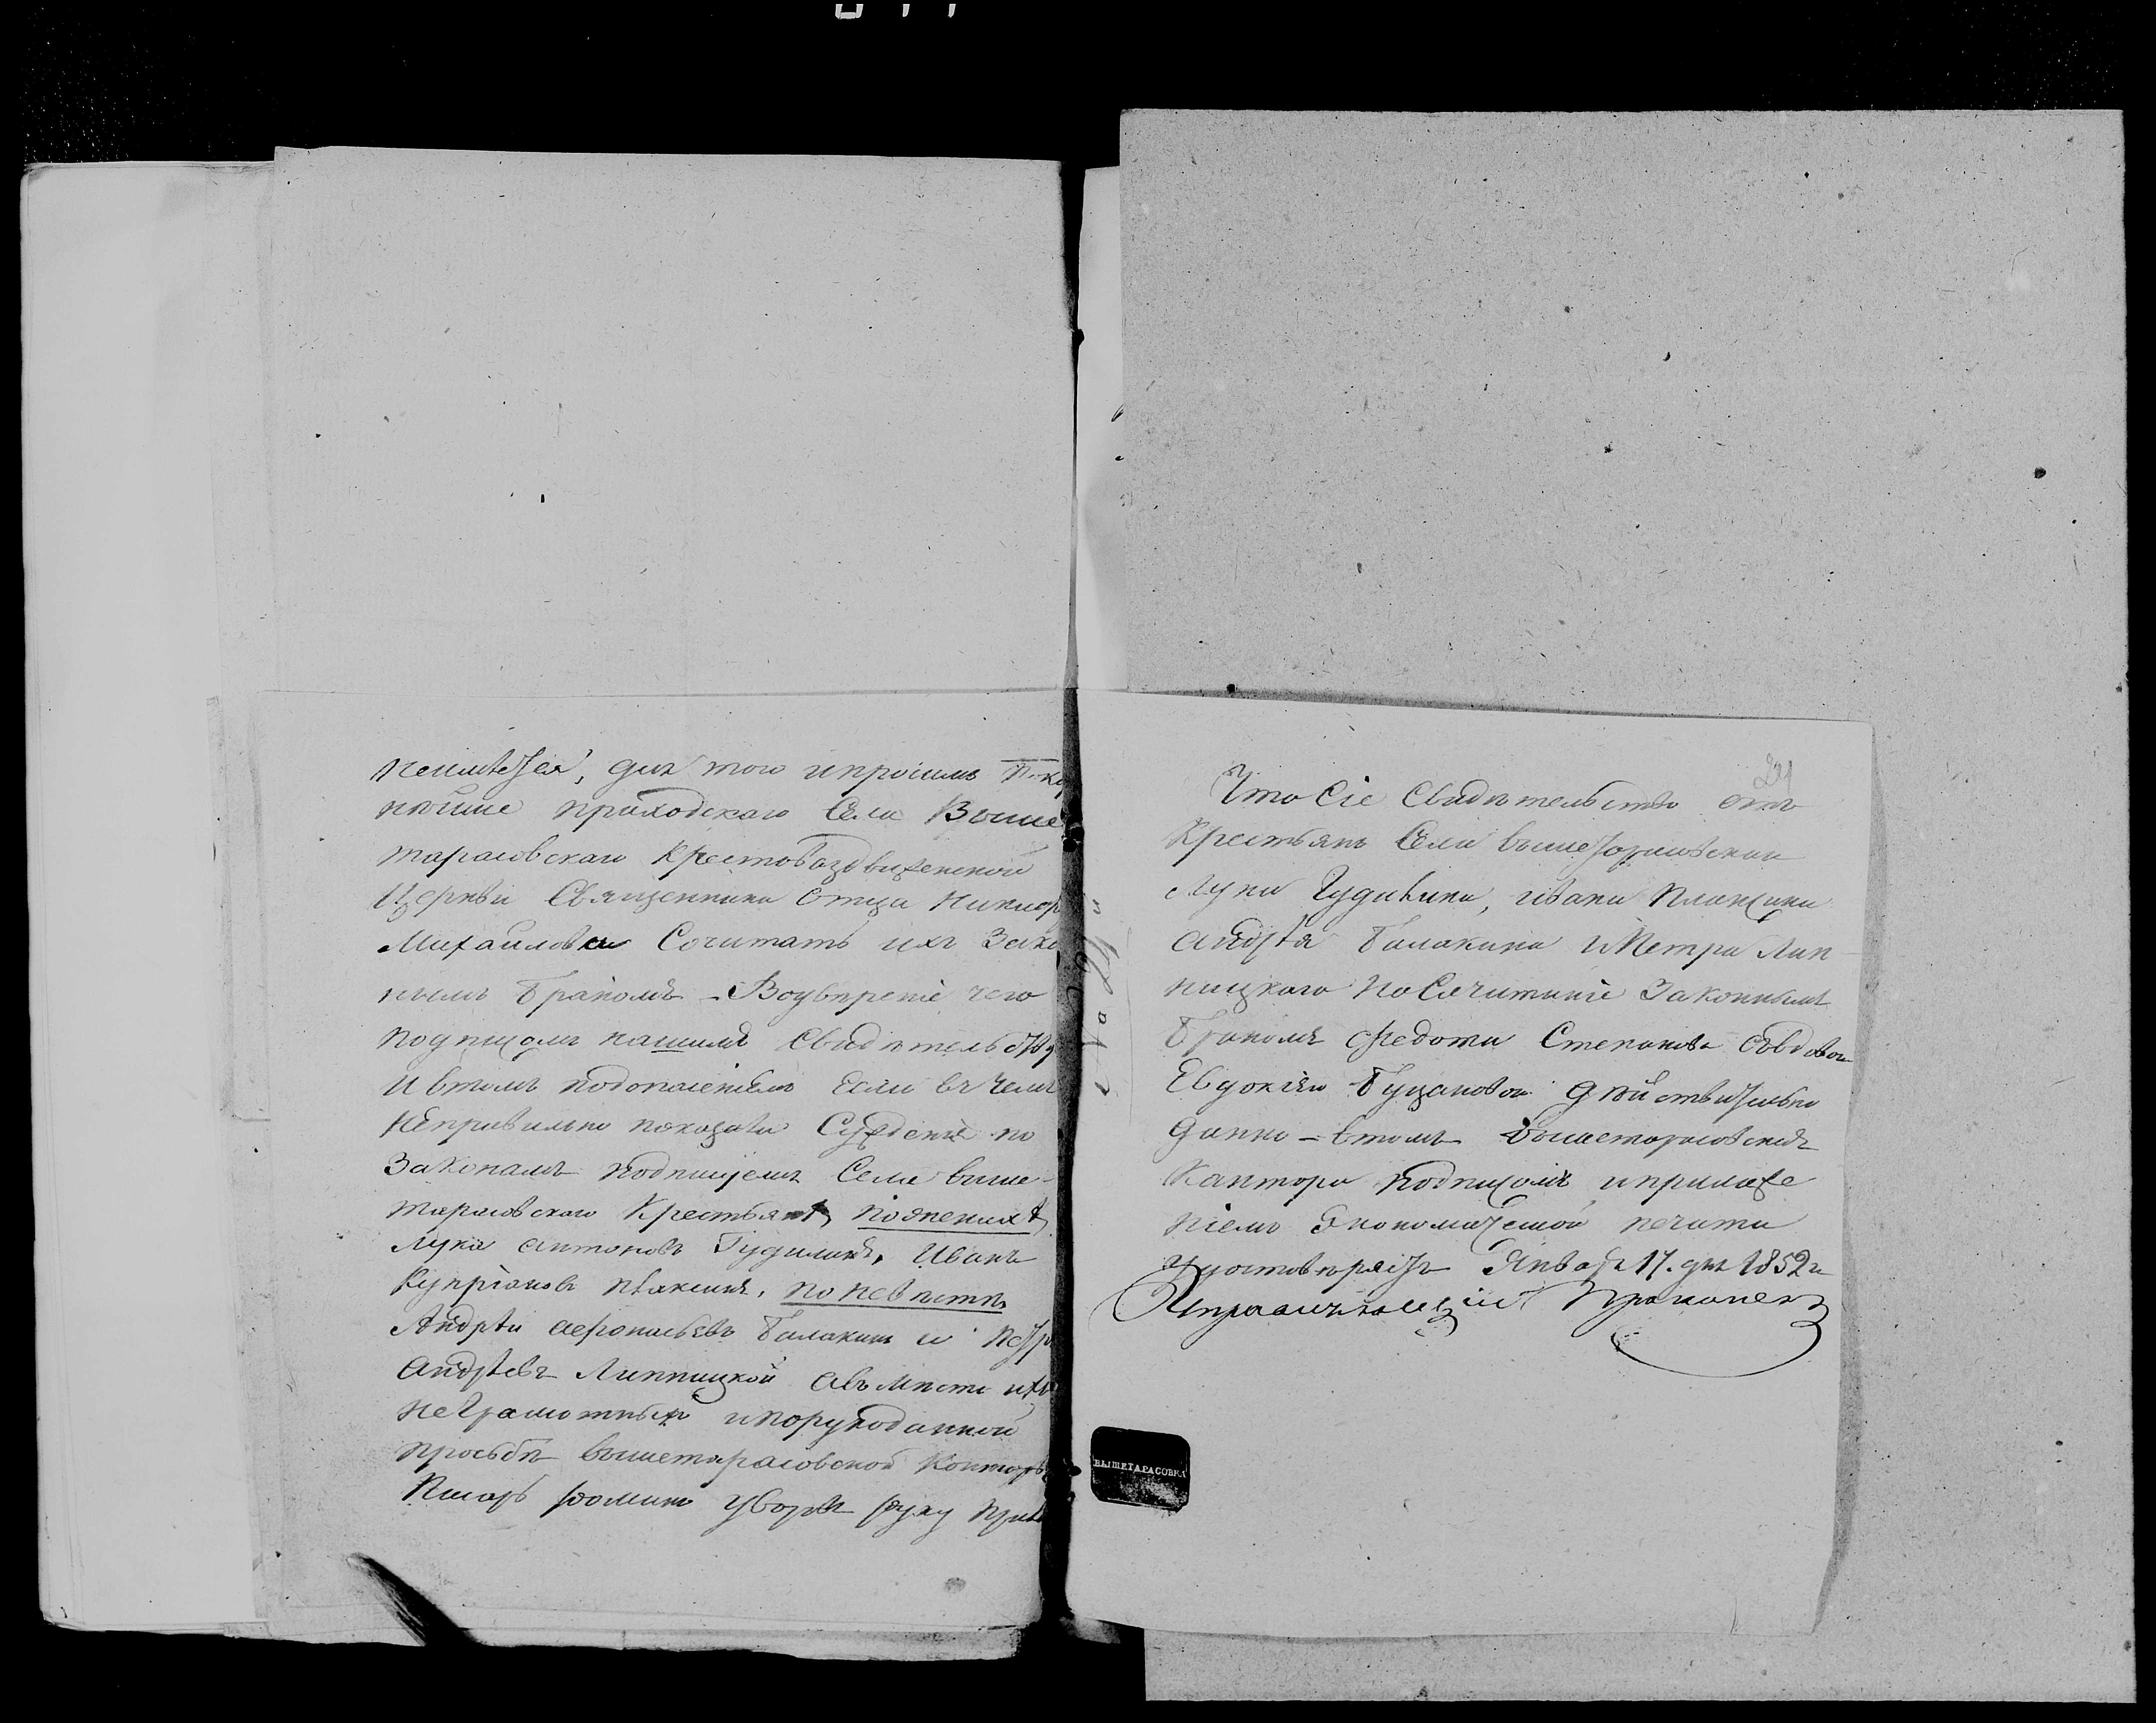 неимеѣтся, для того ипросимъ Пок
нѣйше приходскаго Села Выше
тарасовскаго Крестовоздвиженской
Церкви Священника Отца Никиф
Михайлова Сочитать ихъ Зако
нымъ бракомъ – Воувѣреніе чего
подписомъ нашимъ Свидѣтельству
ивтомъ Если въ чемъ
неправильно показали Сужденію по
Законамъ подписуемъ Села выше-
тарасовскаго Крестьянѣ
Лука Антоновъ Гудилинъ, Иванъ
Купріяновъ Плаксинъ,
Андрѣй Афонасьевъ Балакин и Петр
Андрѣевъ Липницкой авъ мѣсто ихъ
неграмотныхъ ипорукоданной
прозьбѣ вышетарасовской Контор
Писарь руку
221
Что Сіе Свидѣтельство отъ
Крестьянъ Села вышетарасовскаго
Луки Гудилина, ивана Плаксина
андрѣя Балакина иПетра Лип-
ницкаго поСочитаніе Законнымъ
бракомъ Федота Степанова совдовою
Евдокіею дѣйствительно
данно – втомъ вышетарасовская
Кантора подписомъ иприложе
ніемъ Экономической печати
удостовѣряетъ Января 17. дня 1852 г
Управляющій
ВЫШЕТАРАСОВКА